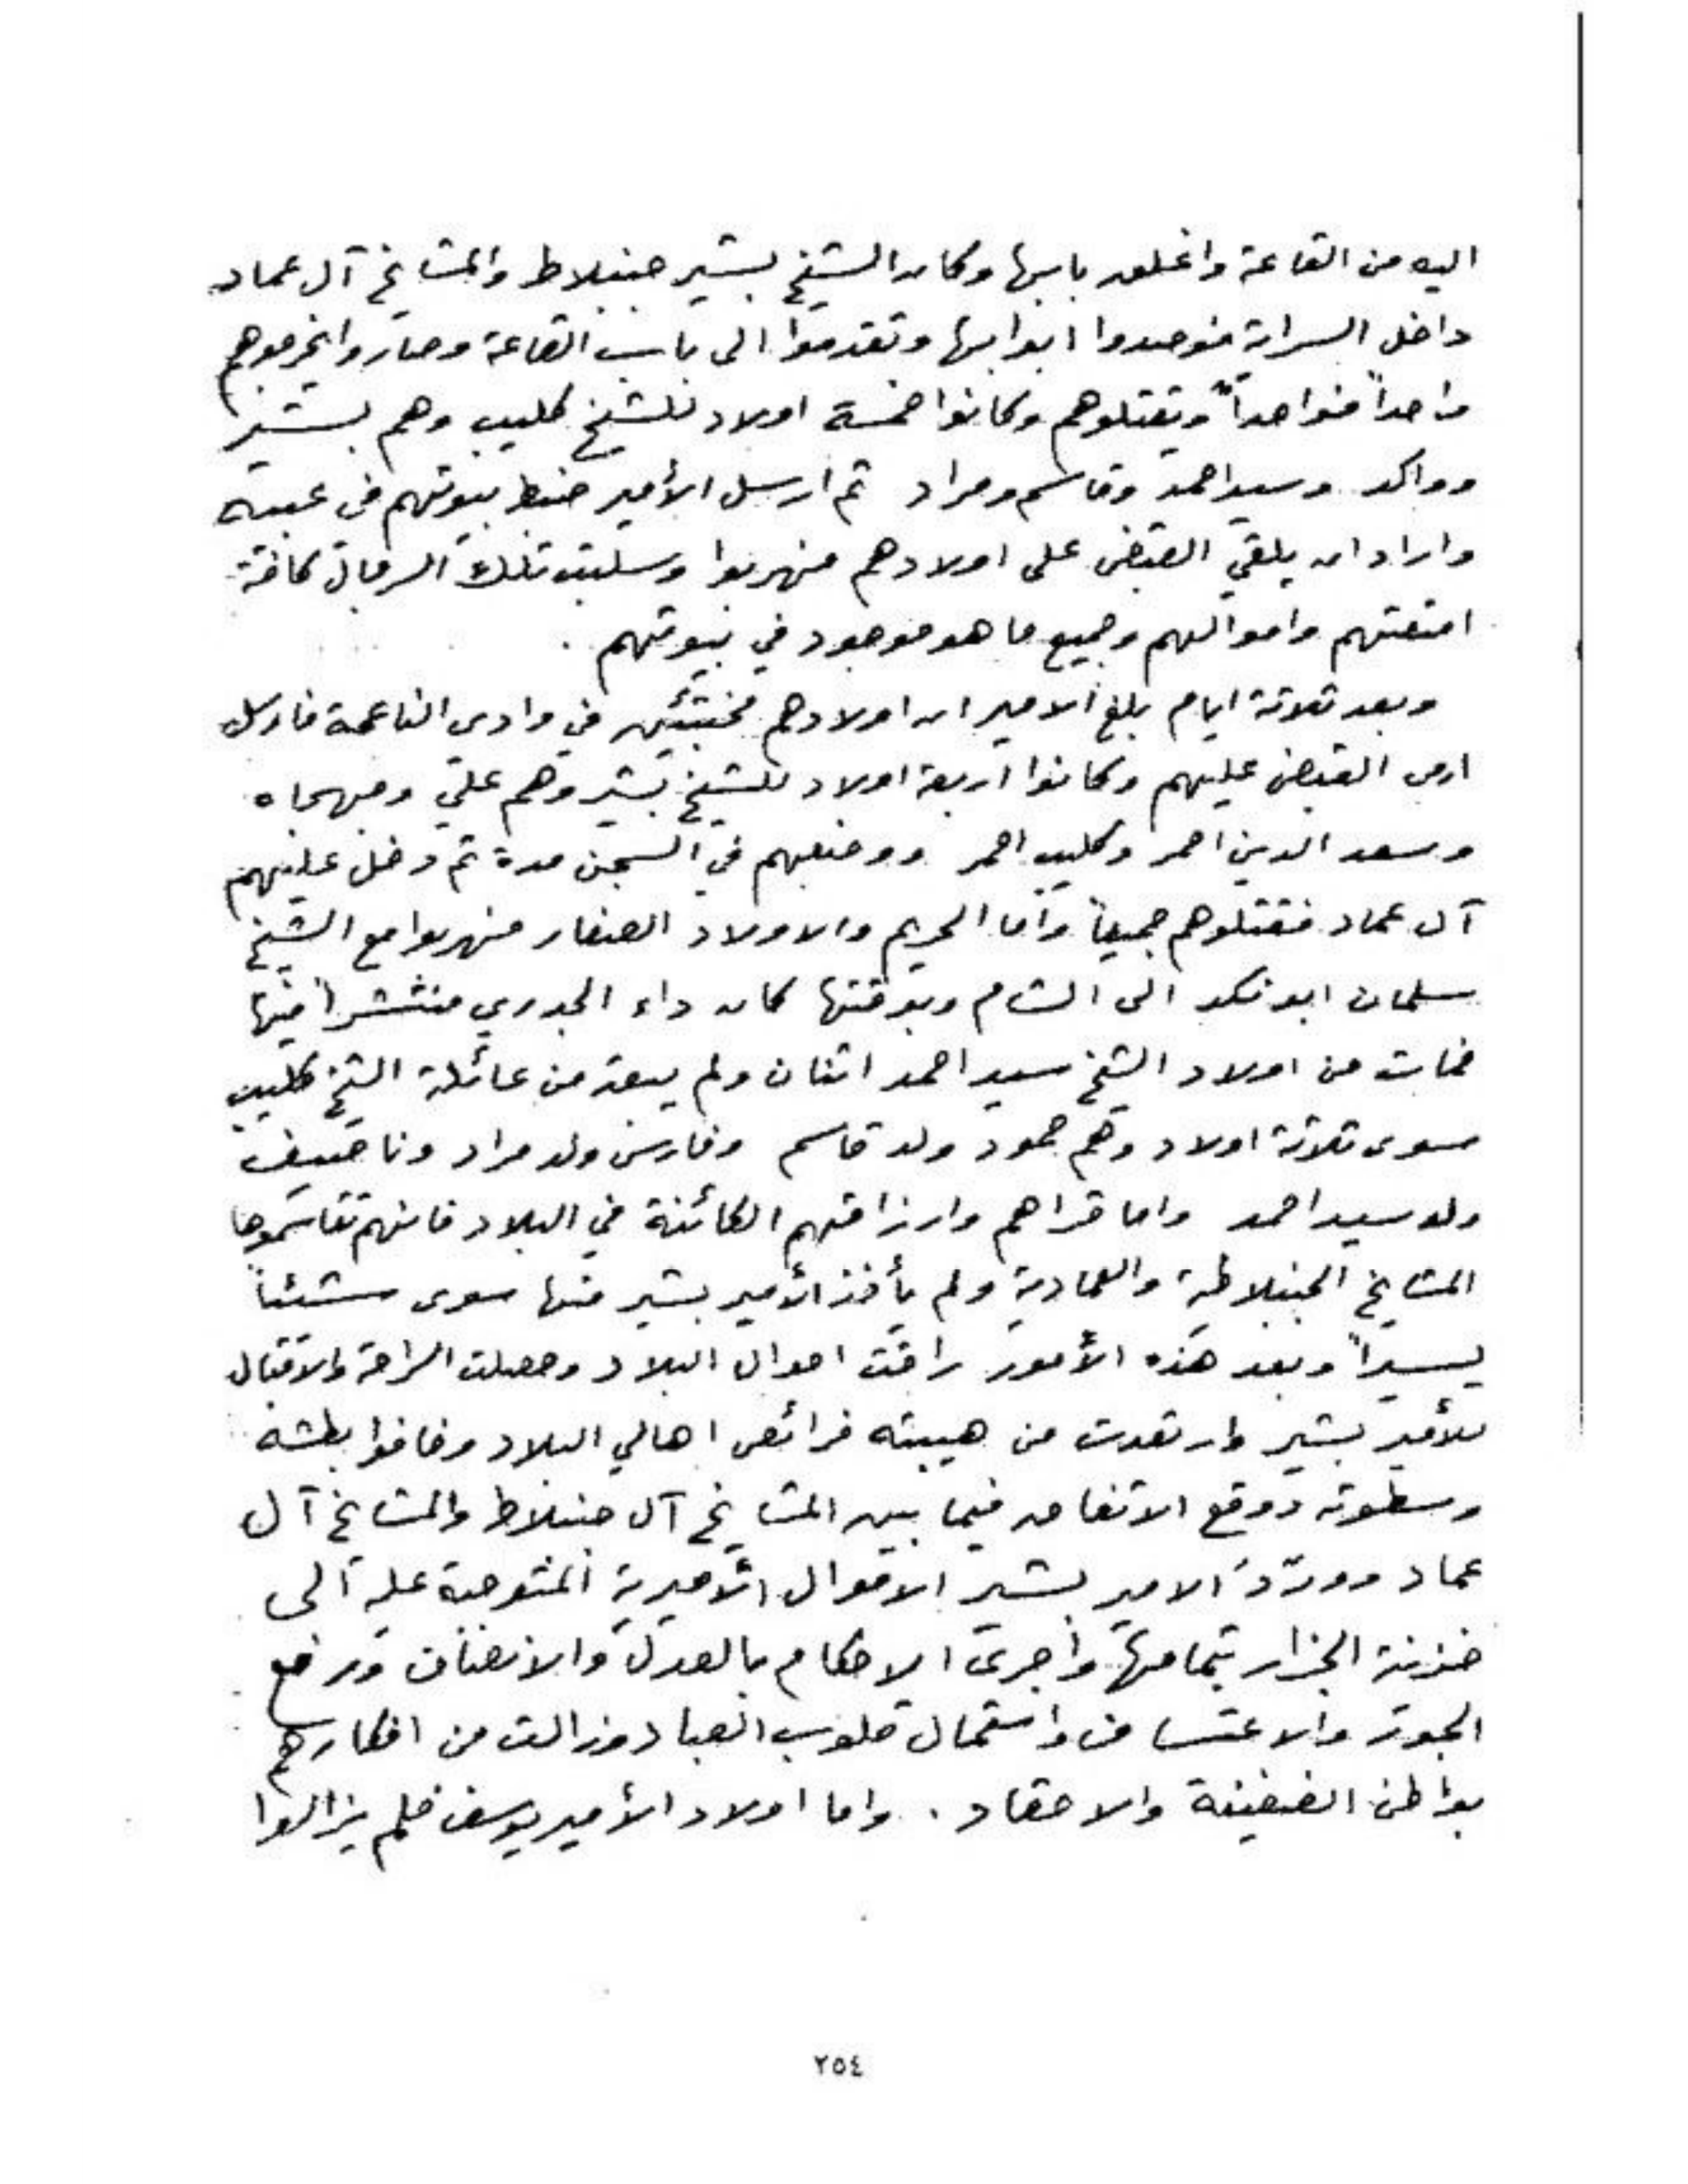 اليه من القاعة واغلق بابها وكان الشيخ بشير جنبلاط والمشايخ آل عماد
داخل السراية فوصدوا ابوابها وتقدموا الى باب القاعة وصاروا يخرجوهم
واحداً فواحداً ويقتلوهم وكانوا خمسة اولاد للشيخ كليب وهم بشير
وواكد وسيداحمد وقاسم ومراد ثم ارسل الأمير ضبط بيوتهم في عبيه
واراد ان يلقي القبض على اولادهم فهربوا وسلبت تلك الرجال كافة
امتعتهم واموالهم وجميع ما هو موجود في بيوتهم .
وبعد ثلاثة ايام بلغ الامير ان اولادهم مختبئين في وادي الناعمة فارسل
ارمى القبض عليهم وكانوا اربعة اولاد للشيخ بشير وهم علي وجهجاه
وسعد الدين احمر وكليب احمر ووضعهم في السجن مدة ثم دخل عليهم
آل عماد فقتلوهم جميعاً وأما الحريم والاولاد الصغار فهربوا مع الشيخ
سلمان ابو نكد الى الشام وبوقتها كان داء الجدري منتشراً فيها
فمات من اولاد الشيخ سيداحمد اثنان ولم يبق من عائلة الشيخ كليب
سوى ثلاثة اولاد وهم حمود ولد قاسم وفارس ولد مراد وناصيف
ولد سيداحمد واما قراهم وارزاقهم الكائنة في البلاد فانهم تقاسموها
المشايخ الجنبلاطية والعمادية ولم يأخذ الأمير بشير منها سوى شيئاً
يسيراً وبعد هذه الأمور راقت احوال البلاد وحصلت الراحة والاقبال
للأمير بشير وارتعدت من هيبته فرائص اهالي البلاد وخافوا بطشه
وسطوته ووقع الاتفاق فيما بين المشايخ آل جنبلاط والمشايخ آل
عماد وورّد الامير بشير الاموال الأميرية المتوجبة عليه الى
خزينة الجزار بتمامها وأجرى الاحكام بالعدل والانصاف ورفع
الجور والاعتساف واستمال قلوب العباد وزالت من افكارهم
بواطن الضغينة والاحقاد . واما اولاد الأمير يوسف فلم يزالوا
٢٥٤